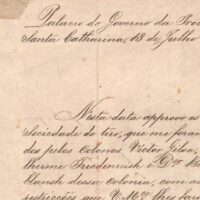 Palacio do Governo da Prov
Santa Catharina, 13 de Julho
Nesta data approvo os
Sociedade do tiro, que me foram
dos pelos Colonos Victor
therme Friedenreich e Dor
dessa Colonia, com as
restricções que V. Mce lhes fará